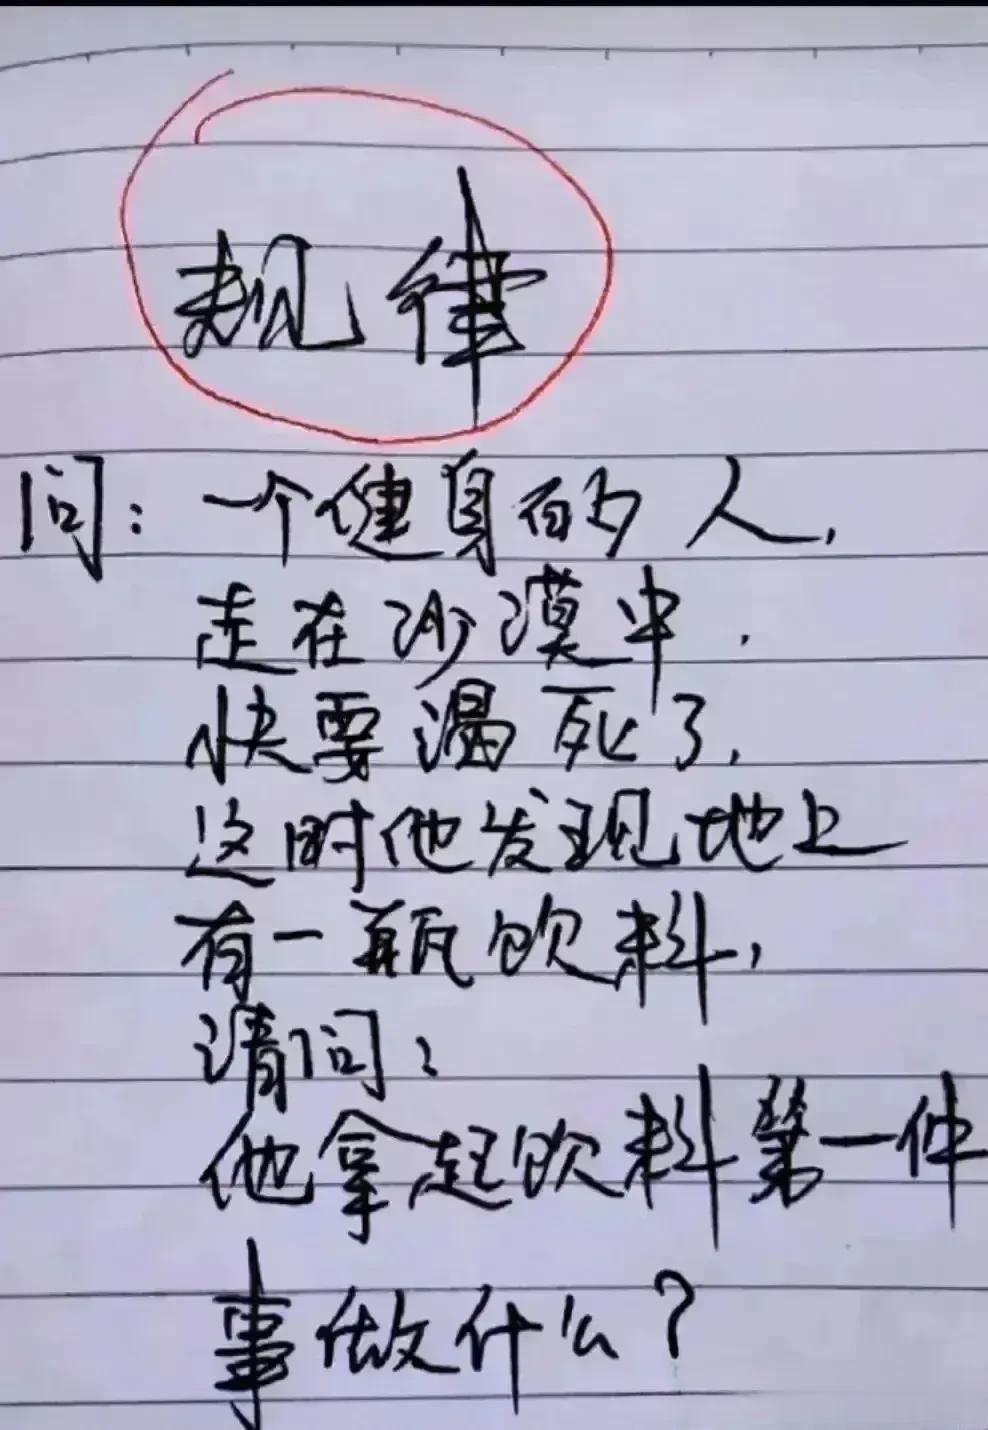 规律
问:一个健身的人,
走在沙漠中.
快要渴死了,
这时他发现地上
有一瓶饮料,
请问:
他拿起饮料第一件
事做什么?